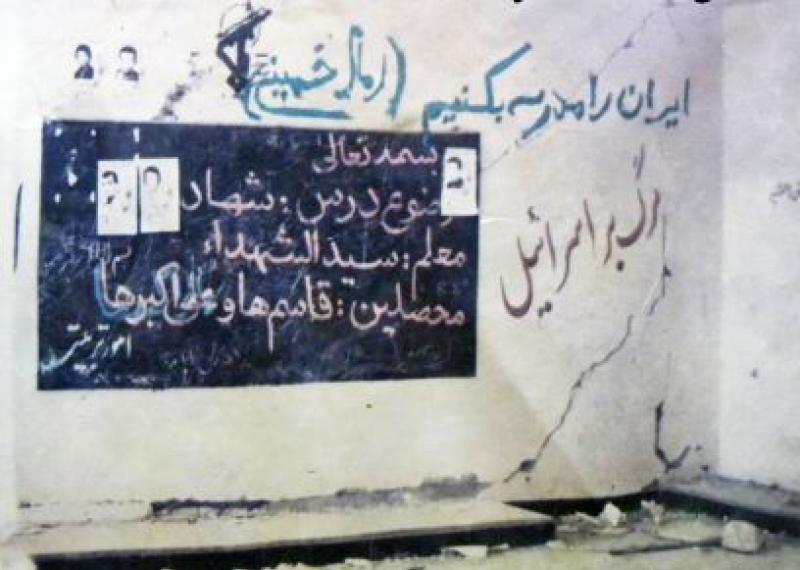 ایران را مدرسه بکنیم (امام خمینی)
بسمه تعالی
موضوع درس: شهادت
معلم: سید الشهداء
محصلین: قاسم ها و علی اکبرها
امور تربیتی
مرگ بر اسرائیل